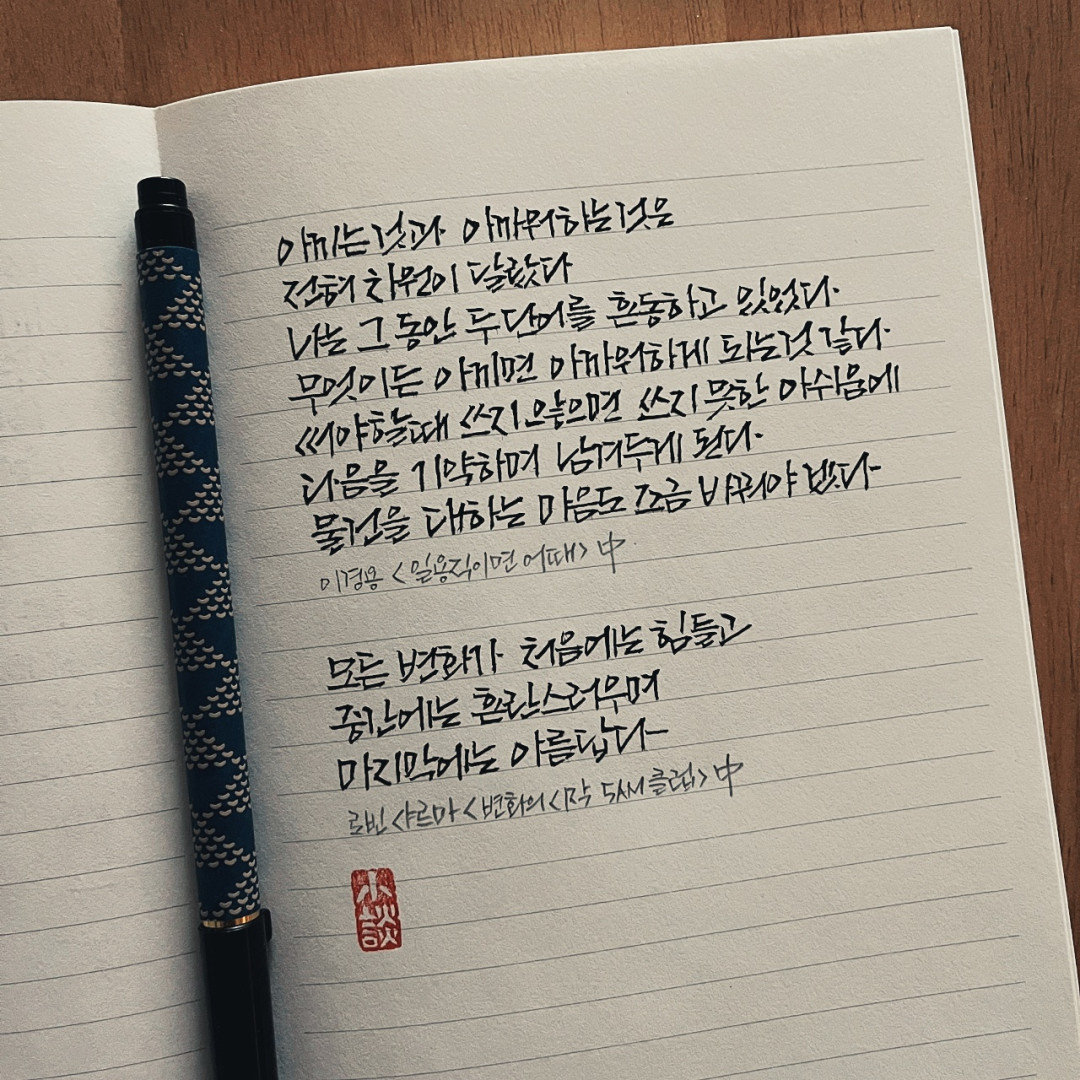 아끼는것과 아까워하는것은
전혀 차원이 달랐다
나는 그동안 두단어를 혼동하고 있었다.
무엇이든 아끼면 아까워하게 되는것 같다.
써야할때 쓰지 않으면 쓰지 못한 아쉬움에
다음을 기약하며 남겨두게 된다.
물건을 대하는 마음도 조금 바꿔야 겠다.
이경용 <일용직이면 어때> 中
모든 변화가 처음에는 힘들고
중간에는 혼란스러우며
마지막에는 아름답다-
로빈 샤르마 <변화의 시작 5AM 클럽> 中
小談